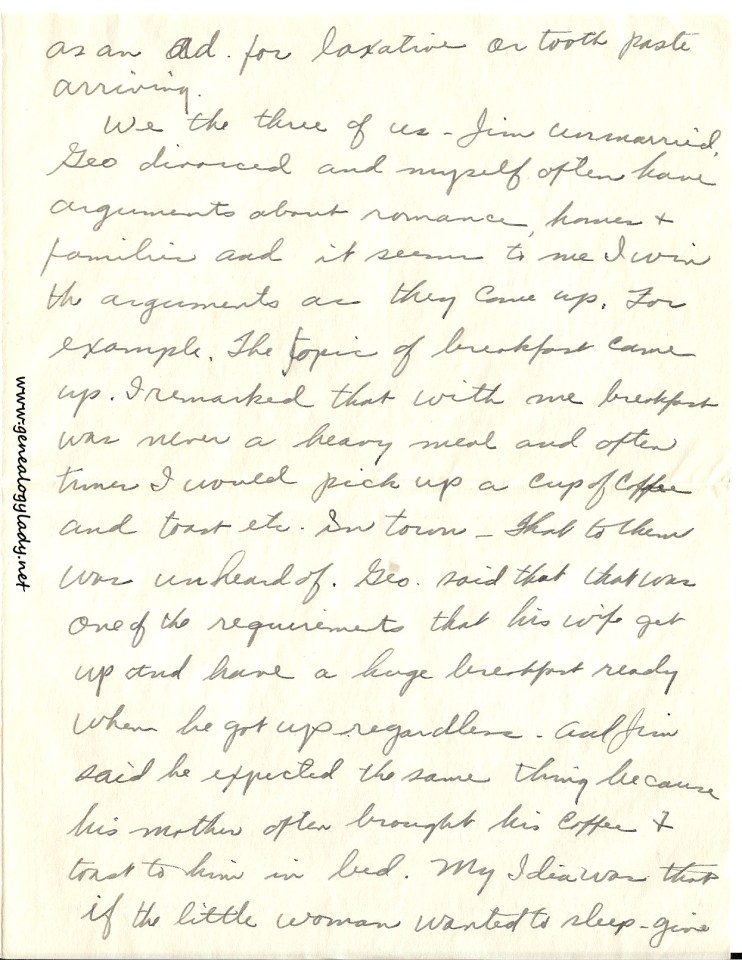 as an ad. for laxative or tooth paste
arriving.
We the three of us - Jim unmarried,
Geo divorced and myself often have
arguments about romance, homes +
families and it seems to me I win
the arguments as they come up. For
example. The topic of breakfast came
up. I remarked that with me breakfast
was never a heavy meal and often
times I would pick up a cup of coffee
and toast etc. in town - that to them
was unheard of. Geo. said that that was
one of the requirements that his wife get
up and have a huge breakfast ready
when he got up regardless - and Jim
said he expected the same thing because
his mother often brought his coffee &
toast to him in bed. My Idea was that
if the little woman wanted to sleep - give
www.genealogylady.net